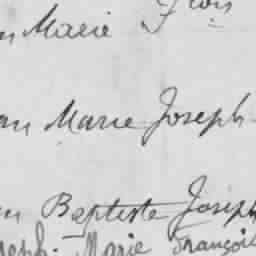 Marie
an Marie Joseph
Baptiste Joseph
seph. Marie François